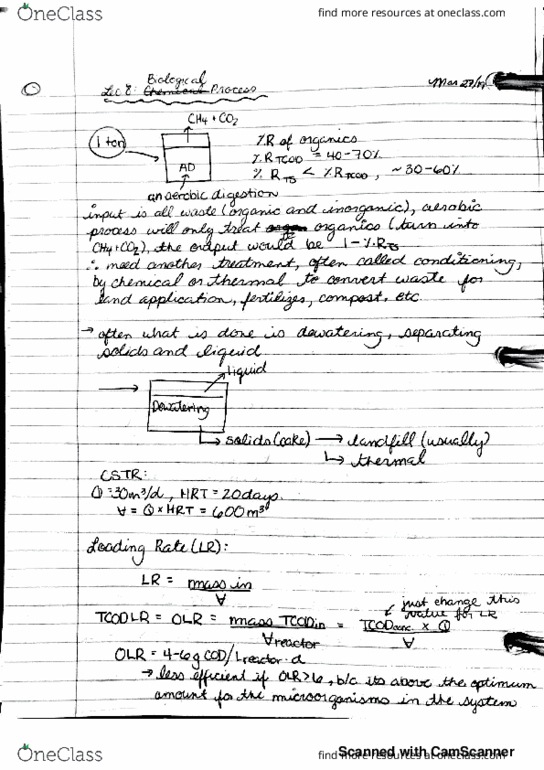 OneClass
find more resources at oneclass.com
Lec 8: Biological Process
Mar 27/19
CH4 + CO2
1 ton
AD
anaerobic digestion
%R of organics
%RTCOD = 40-70%
%RTS < %RTCOD, ~30-60%
input is all waste (organic and inorganic), aerobic
process will only treat organics (turn into
CH4 + CO2), the output would be 1-%RTS
∴ need another treatment, often called conditioning,
by chemical or thermal to convert waste for
land application, fertilizes, compost, etc.
→ often what is done is dewatering, separating
solids and liquid
liquid
Dewatering
solids (cake) → landfill (usually)
↳ thermal
CSTR:
Q = 30m³/d, HRT = 20days.
V = Q × HRT = 600m³
Loading Rate (LR):
LR = mass in / V
just change this
value for LR
TCODLR = OLR = mass TCODin / Vreactor = TCODconc. × Q / V
OLR = 4-6 g COD/Lreactor·d
→ less efficient if OLR>6, b/c its above the optimum
amount for the microorganisms in the system
Scanned with CamScanner
OneClass
find more resources at oneclass.com